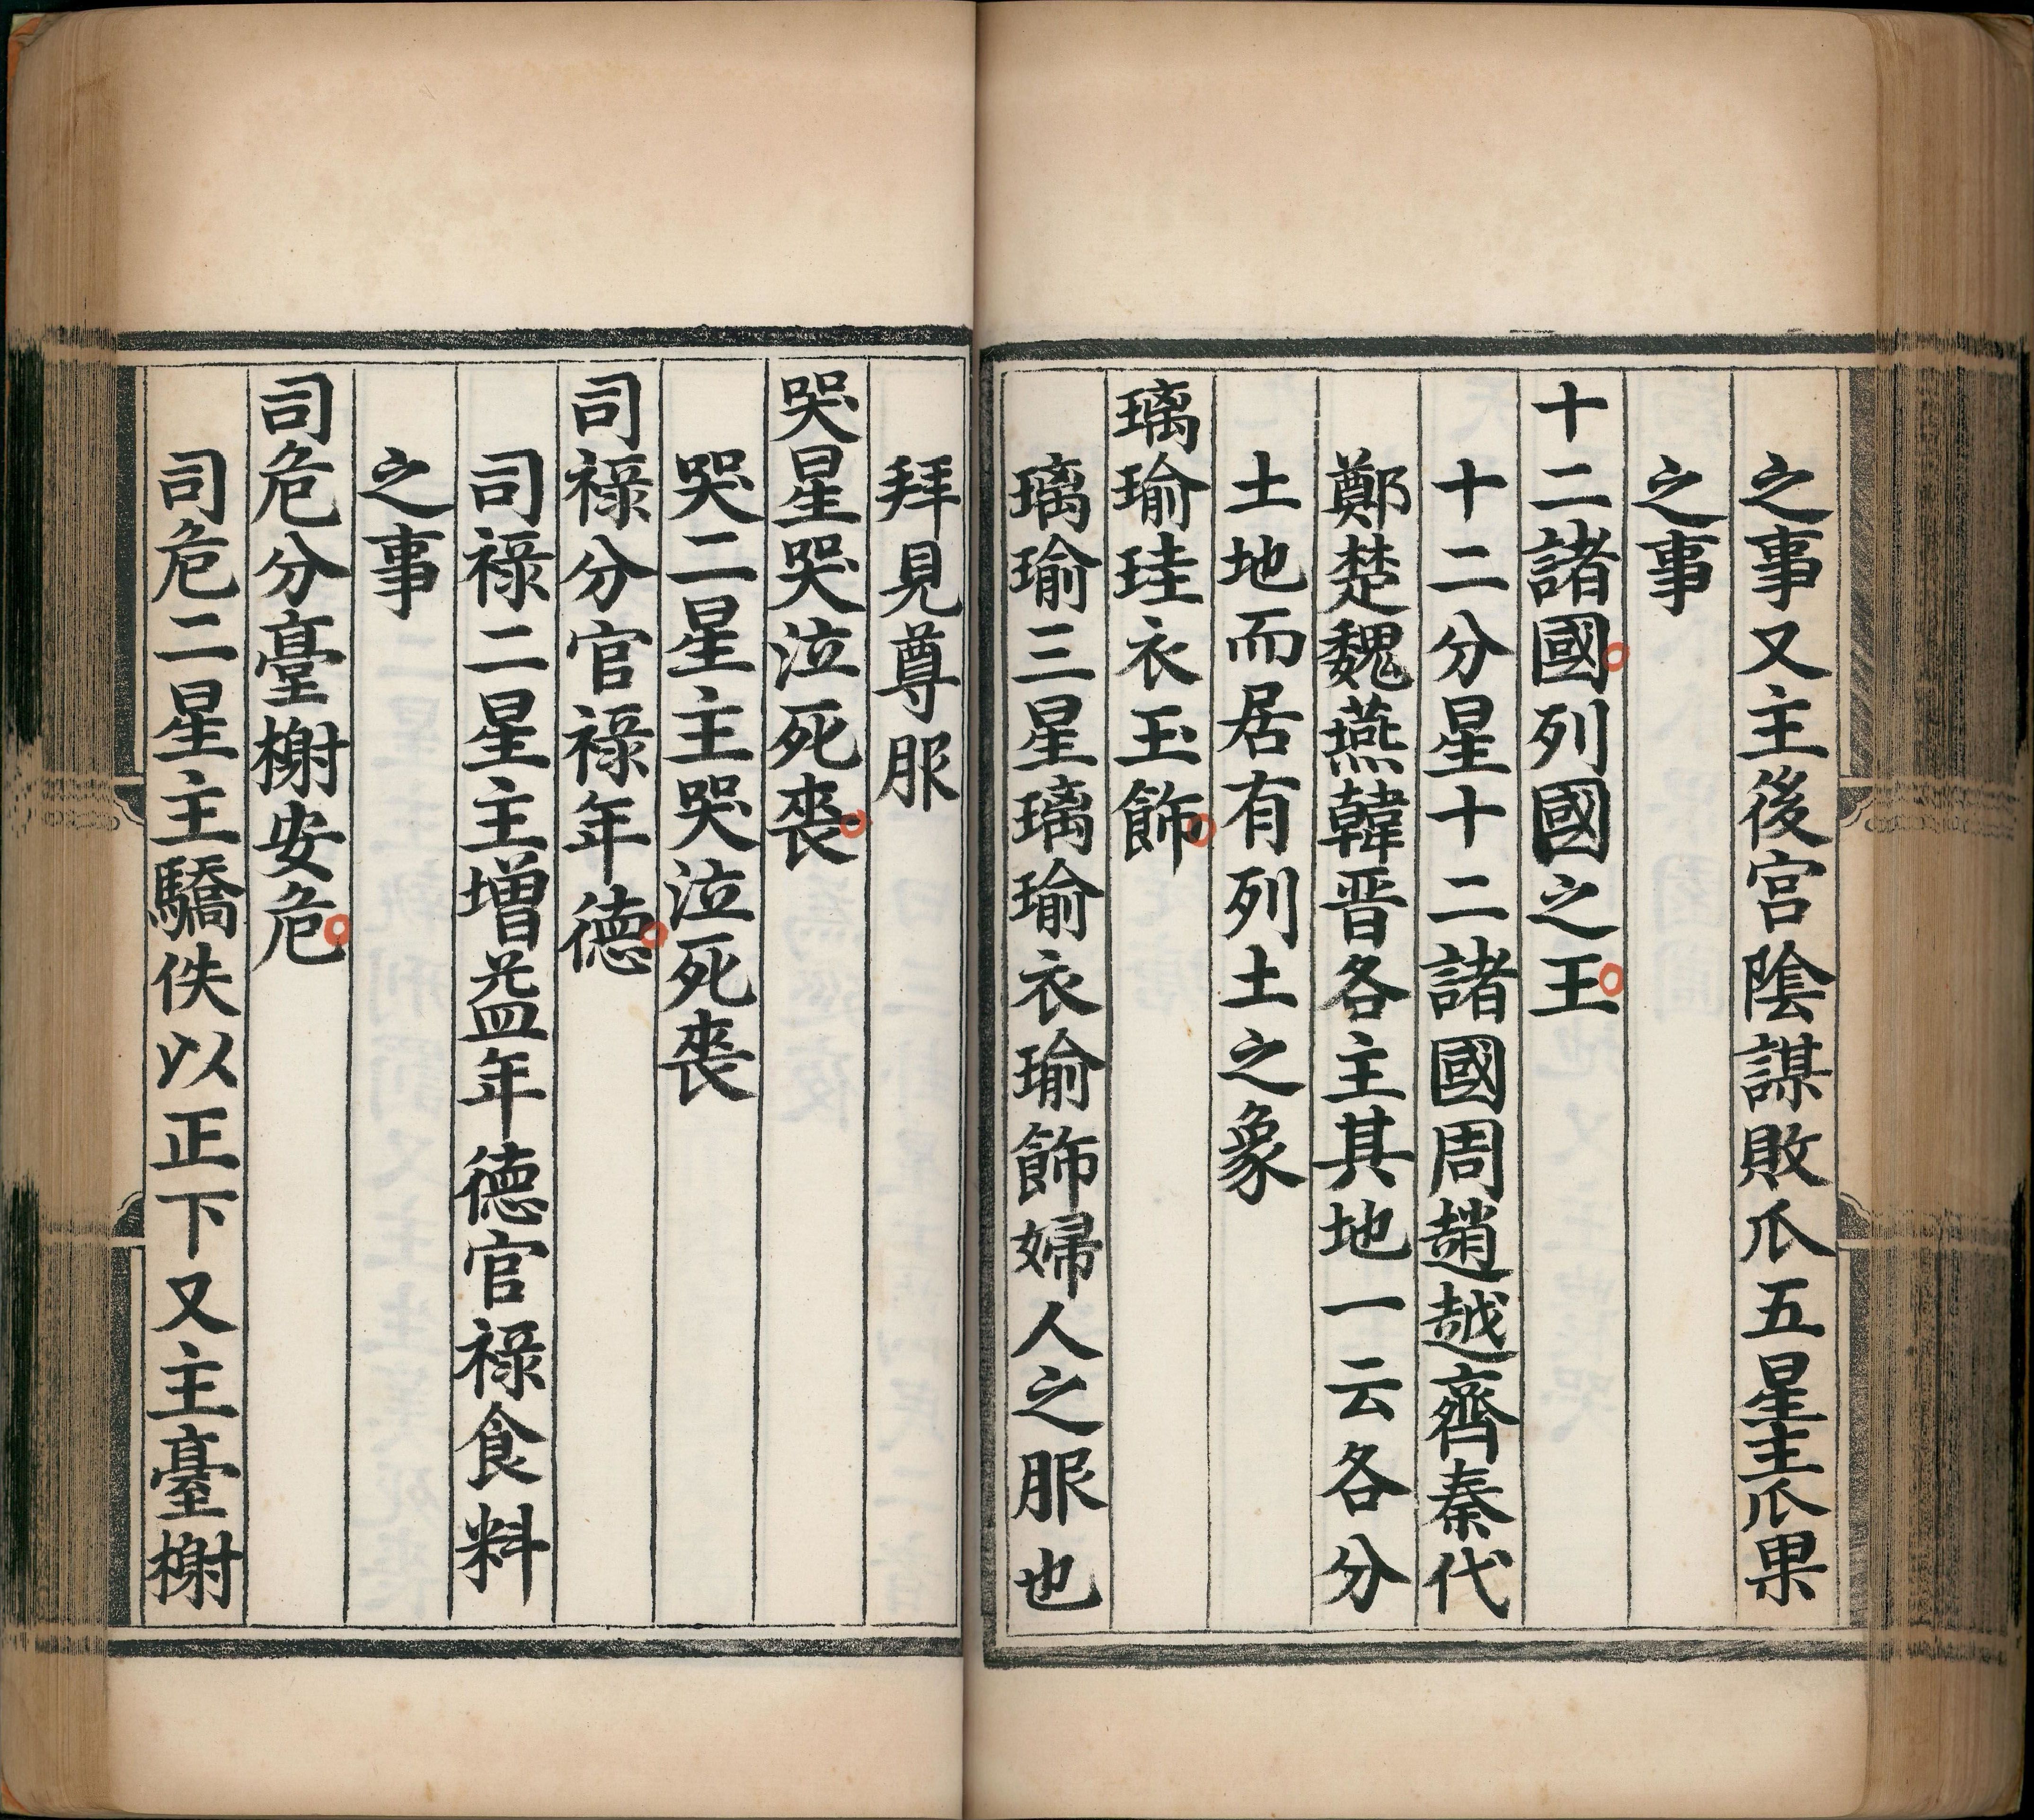 之事又主後宮陰謀敗瓜五星主瓜果
之事
十二諸國列國之王
十二分星十二諸國周趙越齊秦代
鄭楚魏燕韓晋各主其地一云各分
土地而居有列土之象
璃瑜珪衣玉飾
璃瑜三星璃瑜衣瑜飾婦人之服也
拜見尊服
哭星哭泣死喪
哭二星主哭泣死喪
司祿分官祿年德
司祿二星主增益年德官祿食料
之事
司危分臺榭安危
司危二星主驕佚以正下又主臺榭